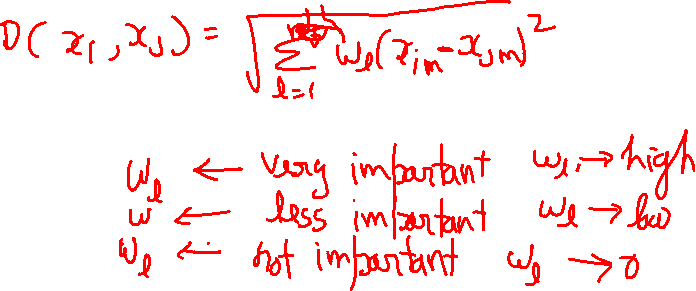 D(x_i, x_j) = √ Σ_{l=1} w_l (x_{im} - x_{jm})^2
w_l ← very important w_l → high
w ← less important w_l → low
w_l ← not important w_l → 0